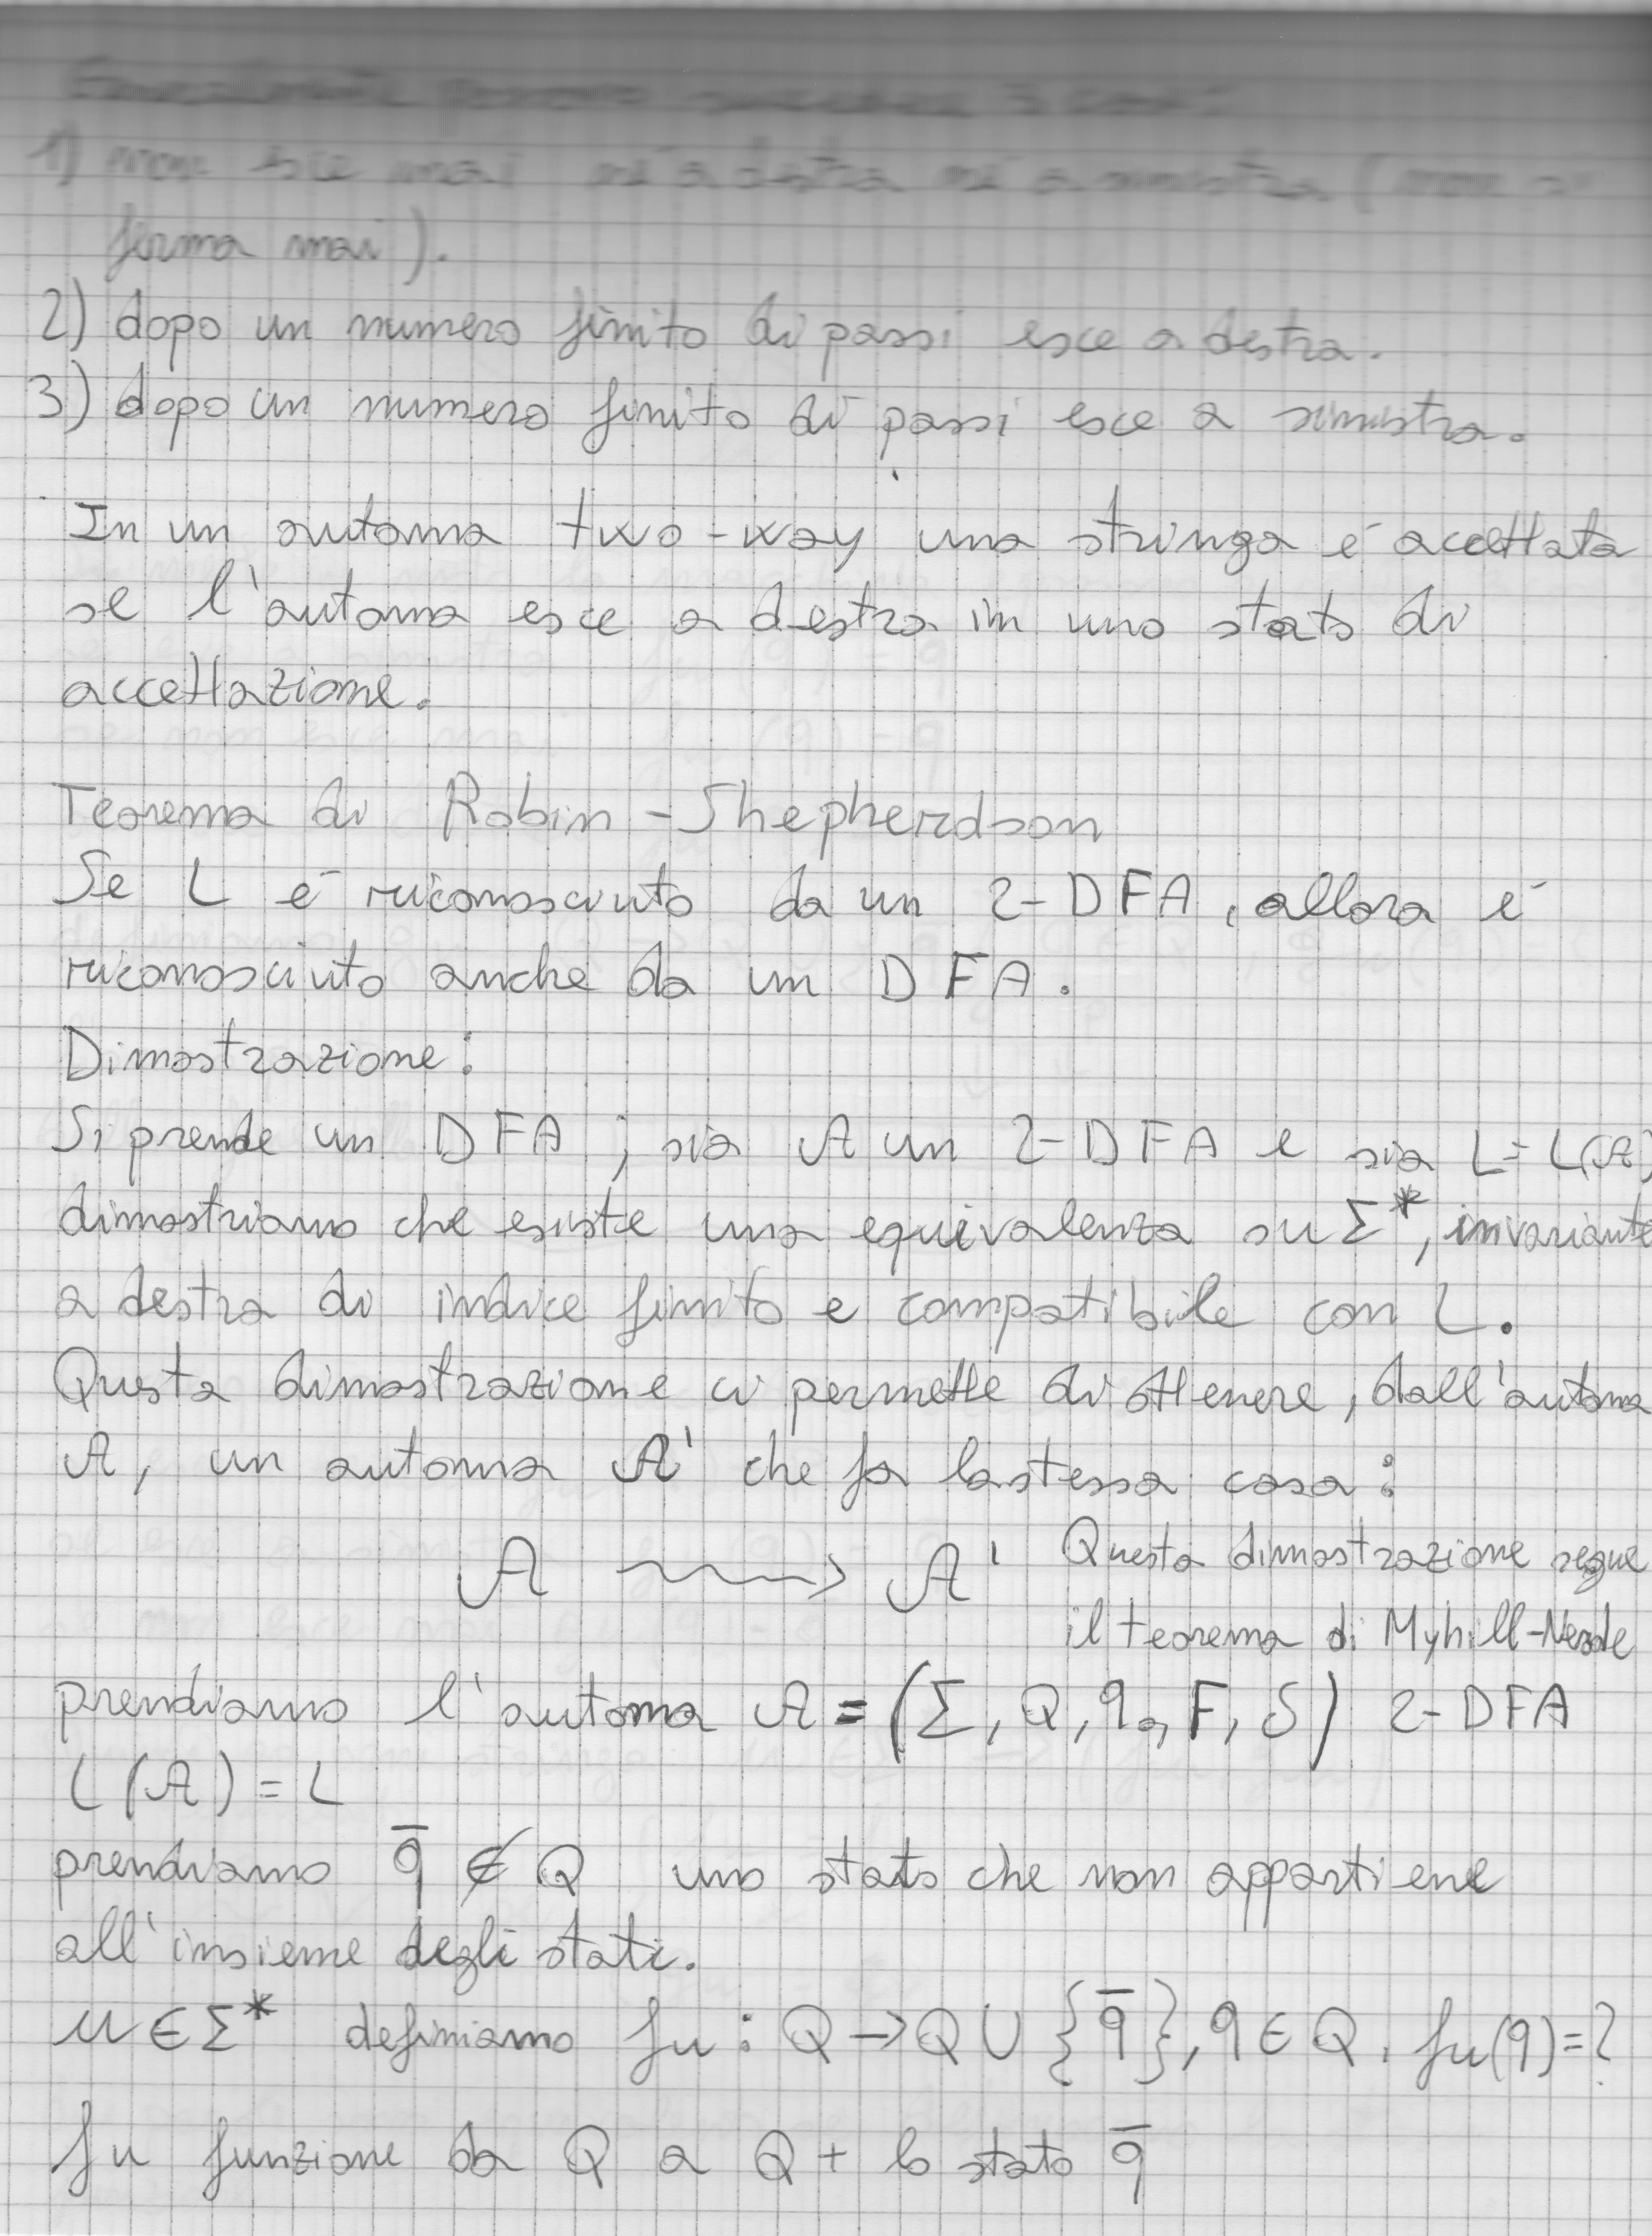 possono succedere 3
1) non esce mai né a destra né a sinistra (non si
ferma mai).
2) dopo un numero finito di passi esce a destra.
3) dopo un numero finito di passi esce a sinistra.
In un automa two-way una stringa é accettata
se l'automa esce a destra in uno stato di
accettazione.
Teorema di Rabin-Shepherdson
Se L é riconosciuto da un 2-DFA, allora é
riconosciuto anche da un DFA.
Dimostrazione:
Si prende un DFA ; sia A un 2-DFA e sia L=L(A)
dimostriamo che esiste una equivalenza su Σ*, invariante
a destra di indice finito e compatibile con L.
Questa dimostrazione ci permette di ottenere, dall'automa
A, un automa A' che fa la stessa cosa:
A ⇝ A' Questa dimostrazione segue
il teorema di Myhill-Nerode
prendiamo l'automa A = (Σ, Q, q₀, F, δ) 2-DFA
L(A) = L
prendiamo q̄ ∉ Q uno stato che non appartiene
all'insieme degli stati.
u ∈ Σ* definiamo fu : Q → Q ∪ {q̄}, q ∈ Q. fu(q)=?
fu funzione da Q a Q + lo stato q̄